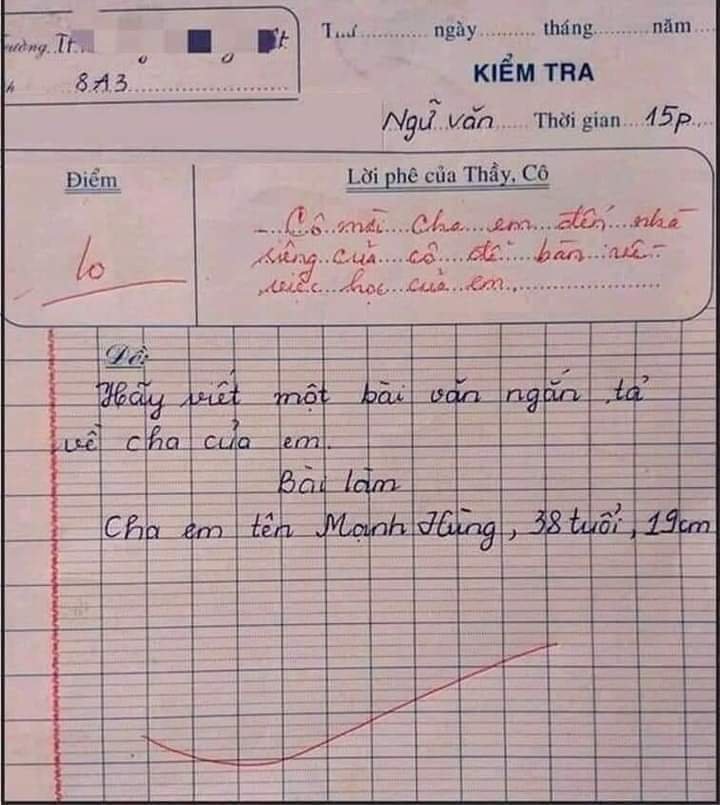 Thứ............ ngày.......... tháng.......... năm
8A3
KIỂM TRA
Ngữ văn Thời gian 15p
Điểm
Lời phê của Thầy, Cô
10
Cô mời cha em đến nhà
riêng của cô để bàn về
việc học của em.
Đề:
Hãy viết một bài văn ngắn tả
về cha của em.
Bài làm
Cha em tên Mạnh Hùng, 38 tuổi, 19cm